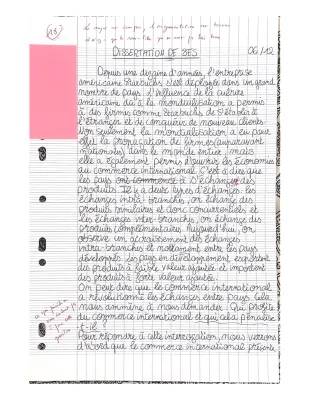 DISSERTATION DE SES 06/12
Depuis une dizaine d'années, l'entreprise
américaine Starbucks s'est déployée dans un grand
nombre de pays. L'influence de la culture
américaine du à la mondialisation a permis
à des firmes comme Starbucks de s'établir à
l'étranger et de conquérir de nouveaux clients.
Non seulement la mondialisation a eu pour
effet la propagation de firmes (auparavant
nationales) dans le monde entier, mais
elle a également permis d'ouvrir les économies
au commerce international. C'est à dire que
les pays ont commencé à s'échanger des
produits. Il y a deux types d'échanges : les
échanges intra-branches, on échange des
produits similaires et donc concurrentiels et
les échanges inter-branches, on échange des
produits complémentaires. Aujourd'hui, on
observe un accroissement des échanges
intra-branches et notamment entre les pays
développés. Les pays en développement exportent
des produits à faible valeur ajoutée et importent
des produits à forte valeur ajoutée.
On peut dire que le commerce international
a révolutionné les échanges entre pays. Cela
nous ammène à nous demander : Qui profite
du commerce international et qui cela pénalise
t-il
Pour répondre à cette interrogation, nous verrons
d'abord que le commerce international présente